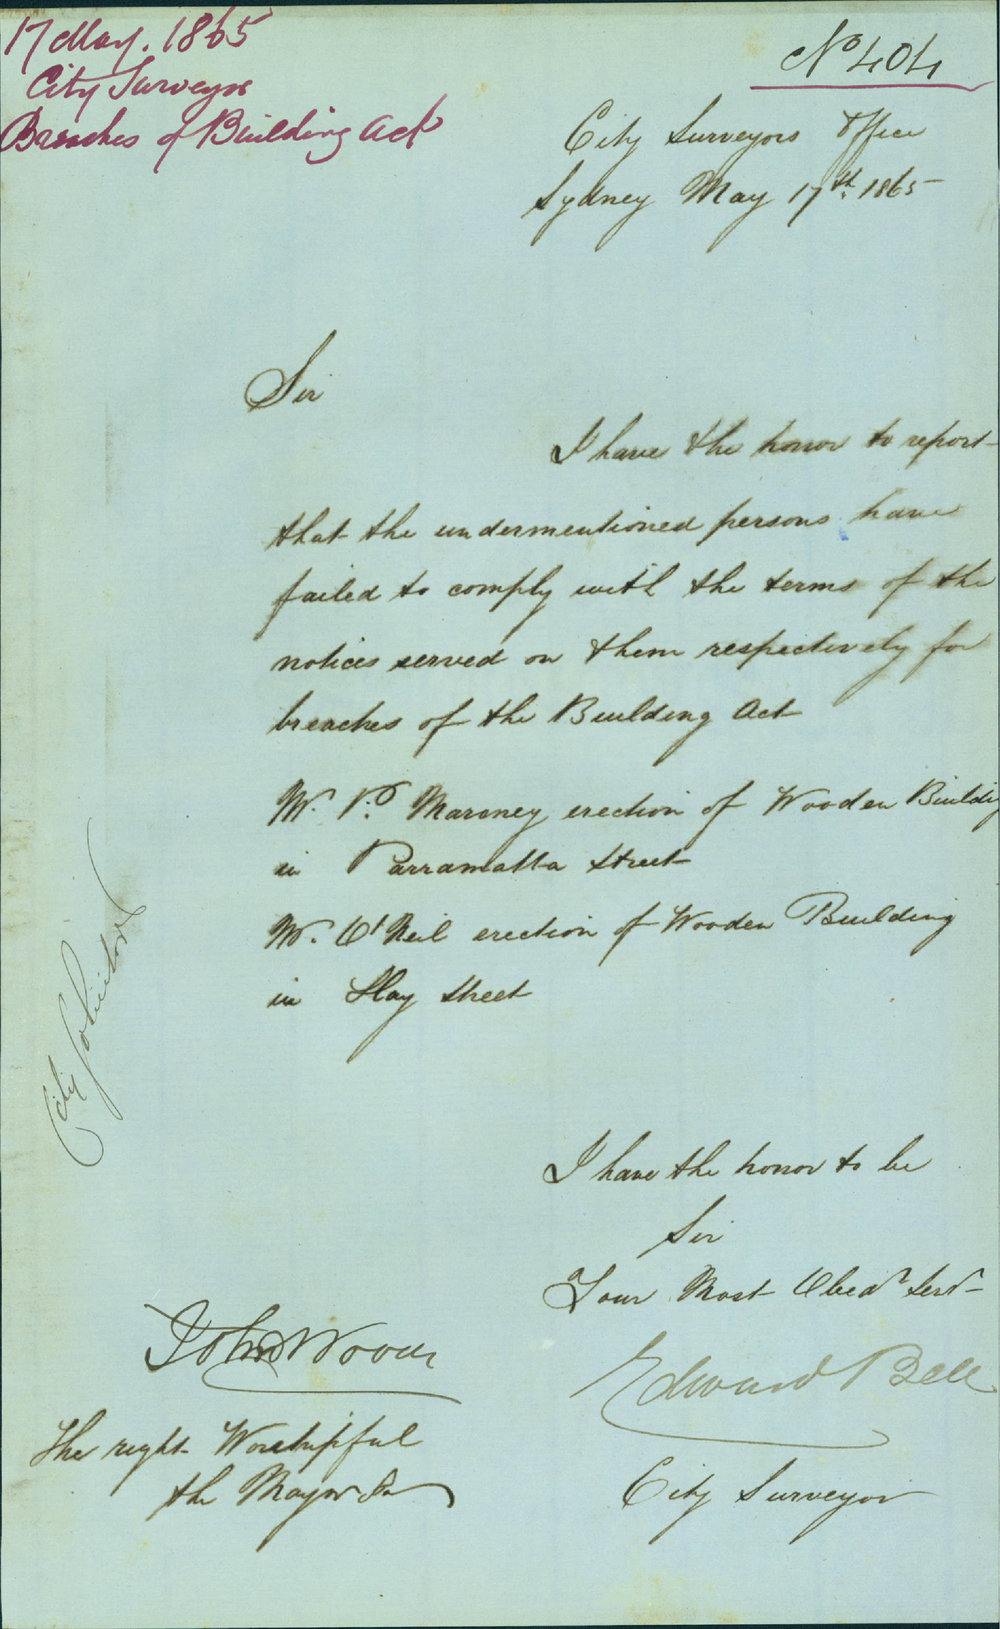 17 May. 1865
City Surveyor
Breaches of Building Act
No 404
City Surveyors Office
Sydney May 17th. 1865
Sir
I have the honor to report
that the undermentioned persons have
failed to comply with the terms of the
notices served on them respectively for
breaches of the Building Act
Mr. P. Maroney erection of Wooden Building
in Parramatta Street
Mr. O'Neil erection of Wooden Building
in Hay Street
City Solicitor
I have the honor to be
Sir
Your Most Obedt Servt
Edward Bell
City Surveyor
John Woods
The right Worshipful
the Mayor